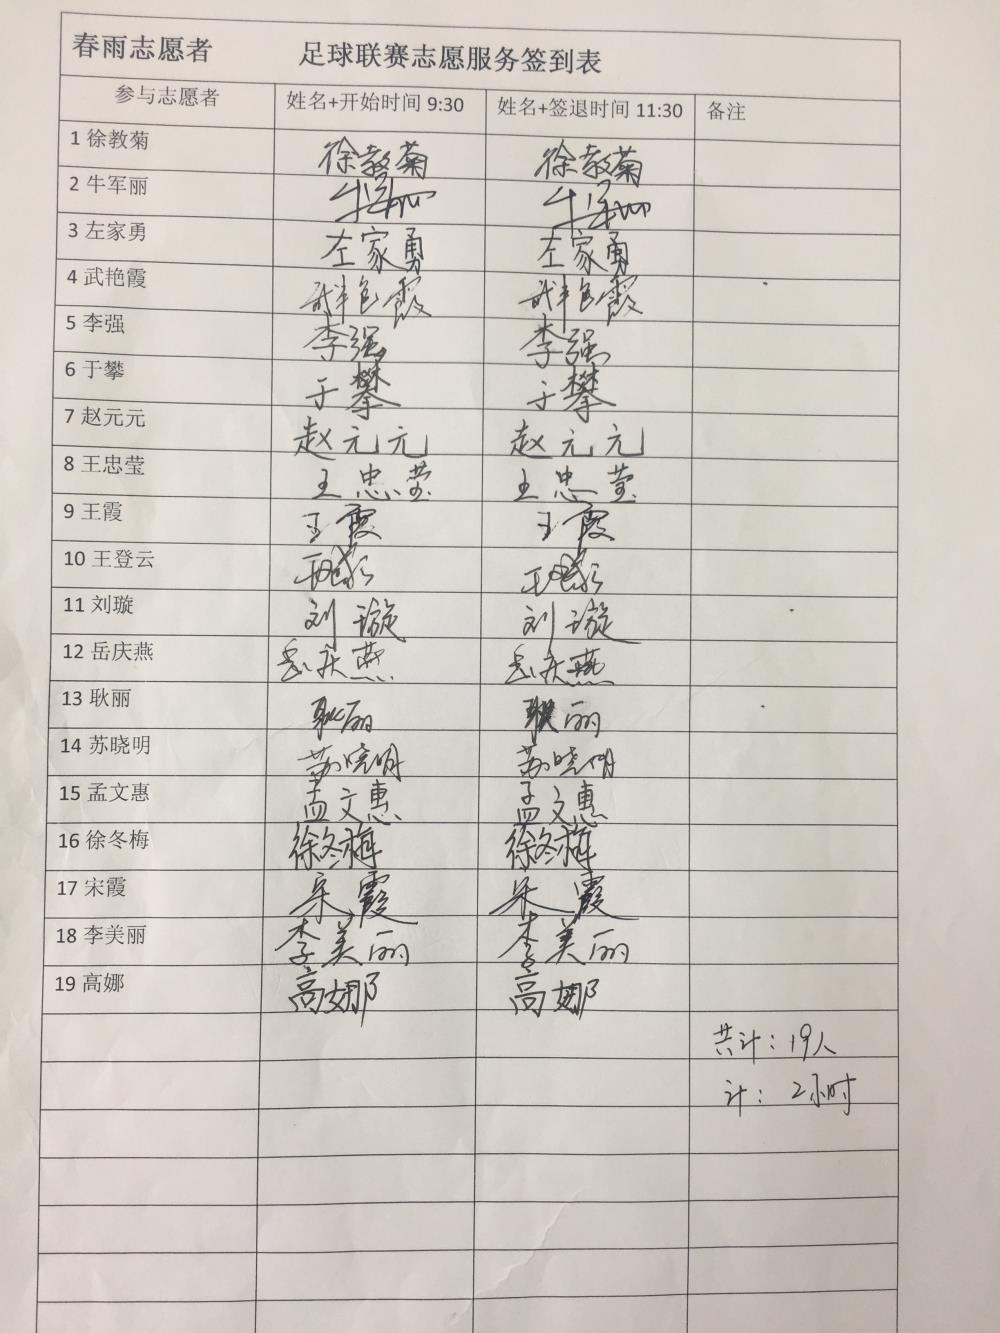 春雨志愿者 足球联赛志愿服务签到表
参与志愿者 姓名+开始时间 9:30 姓名+签退时间 11:30 备注
1 徐教菊 徐教菊 徐教菊
2 牛军丽 牛军丽 牛军丽
3 左家勇 左家勇 左家勇
4 武艳霞 武艳霞 武艳霞
5 李强 李强 李强
6 于攀 于攀 于攀
7 赵元元 赵元元 赵元元
8 王忠莹 王忠莹 王忠莹
9 王霞 王霞 王霞
10 王登云 王登云 王登云
11 刘璇 刘璇 刘璇
12 岳庆燕 岳庆燕 岳庆燕
13 耿丽 耿丽 耿丽
14 苏晓明 苏晓明 苏晓明
15 孟文惠 孟文惠 孟文惠
16 徐冬梅 徐冬梅 徐冬梅
17 宋霞 宋霞 宋霞
18 李美丽 李美丽 李美丽
19 高娜 高娜 高娜
共计：19人
计：2小时